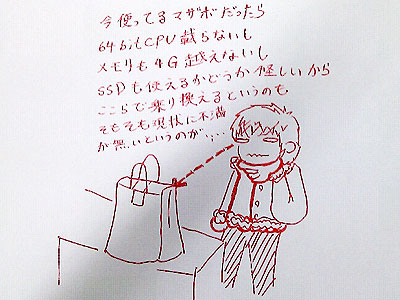 今使ってるマザボだったら
64bitCPU載らないし
メモリも4G越えないし
SSDも使えるかどうか怪しいから
ここらで乗り換えるというのも
そもそも現状に不満
が無いというのが……